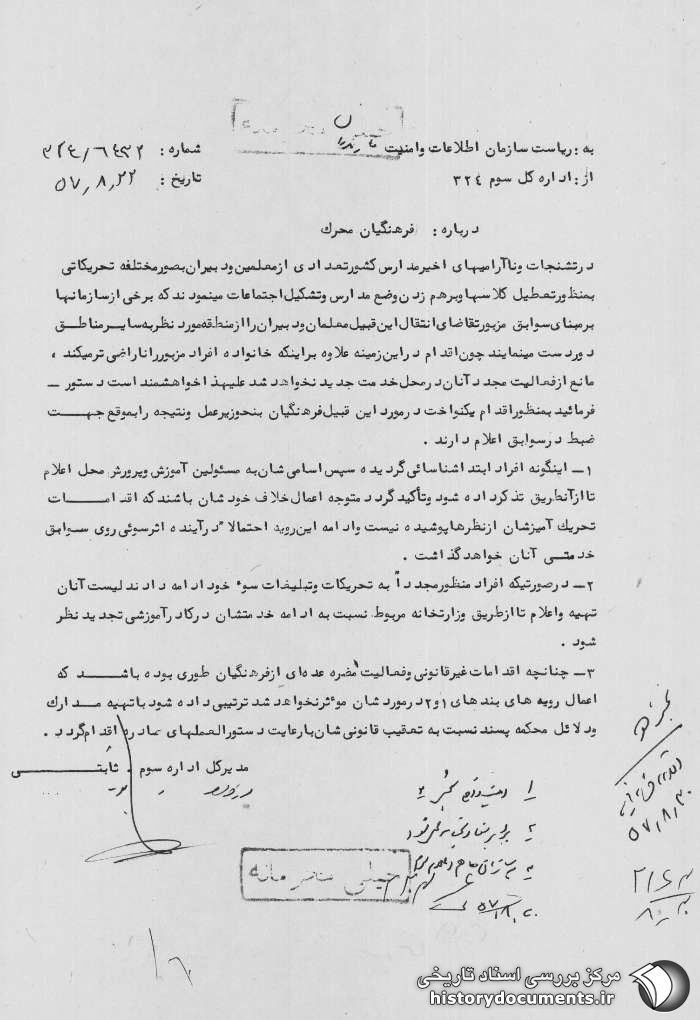 به : ریاست سازمان اطلاعات و امنیت مازندران
شماره : ۳۲۴/۶۴۳۲
از : اداره کل سوم ۳۲۴
تاریخ : ۵۷٫۸٫۲۲
درباره : فرهنگیان محرك
درتشنجات وناآرامیهای اخیرمدارس کشورتعدادی ازمعلمین ودبیران بصورمختلفه تحریکاتی
بمنظورتعطیل کلاسهاوبرهم زدن وضع مدارس وتشکیل اجتماعات مینمودندکه برخی ازسازمانها
برمبنای سوابق مزبورتقاضای انتقال این قبیل معلمان ودبیران راازمنطقه موردنظربه سایرمناطق
دوردست مینمایند چون اقدام دراین زمینه علاوه براینکه خانواده افراد مزبورراناراضی ترمیکند ،
مانع ازفعالیت مجددآنان درمحل خدمت جدیدنخواهدشد علیهذاخواهشمنداست دستور ــ
فرمائیدبمنظوراقدام یکنواخت درمورداین قبیل فرهنگیان بنحوزیرعمل ونتیجه رابموقع جهت
ضبط درسوابق اعلام دارند .
۱ــ اینگونه افراد ابتداشناسائی گردیده سپس اسامی شان به مسئولین آموزش وپرورش محل اعلام
تاازآنطریق تذکرداده شود وتأکیدگردد متوجه اعمال خلاف خودشان باشندکه اقدامات
تحریك آمیزشان ازنظرهاپوشیده نیست وادامه این رویه احتمالا" درآینده اثرسوئی روی سوابق
خدمتی آنان خواهدگذاشت .
۲ــ درصورتیکه افراد منظورمجدداً به تحریکات وتبلیغات سوء خودادامه دادند لیست آنان
تهیه واعلام تاازطریق وزارتخانه مربوط نسبت به ادامه خدمتشان درکادرآموزشی تجدیدنظر
شود .
۳ــ چنانچه اقدامات غیرقانونی وفعالیت مضره عده‌ای ازفرهنگیان طوری بوده باشد که
اعمال رویه های بندهای ۱و۲درموردشان موءثرنخواهدشد ترتیبی داده شودباتهیه مدارك
ودلائل محکمه پسند نسبت به تعقیب قانونی شان بارعایت دستورالعملهای صادره اقدام گردد .
مدیرکل اداره سوم . ثابتی
۵۷٫۸٫۳۰
خیلی محرمانه
مرکز بررسی اسناد تاریخی
historydocuments.ir